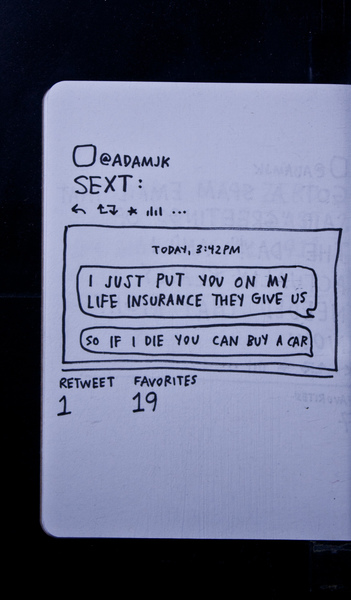 @ADAMJK
SEXT:
TODAY, 3:42PM
I JUST PUT YOU ON MY
LIFE INSURANCE THEY GIVE US
SO IF I DIE YOU CAN BUY A CAR
RETWEET FAVORITES
1 19